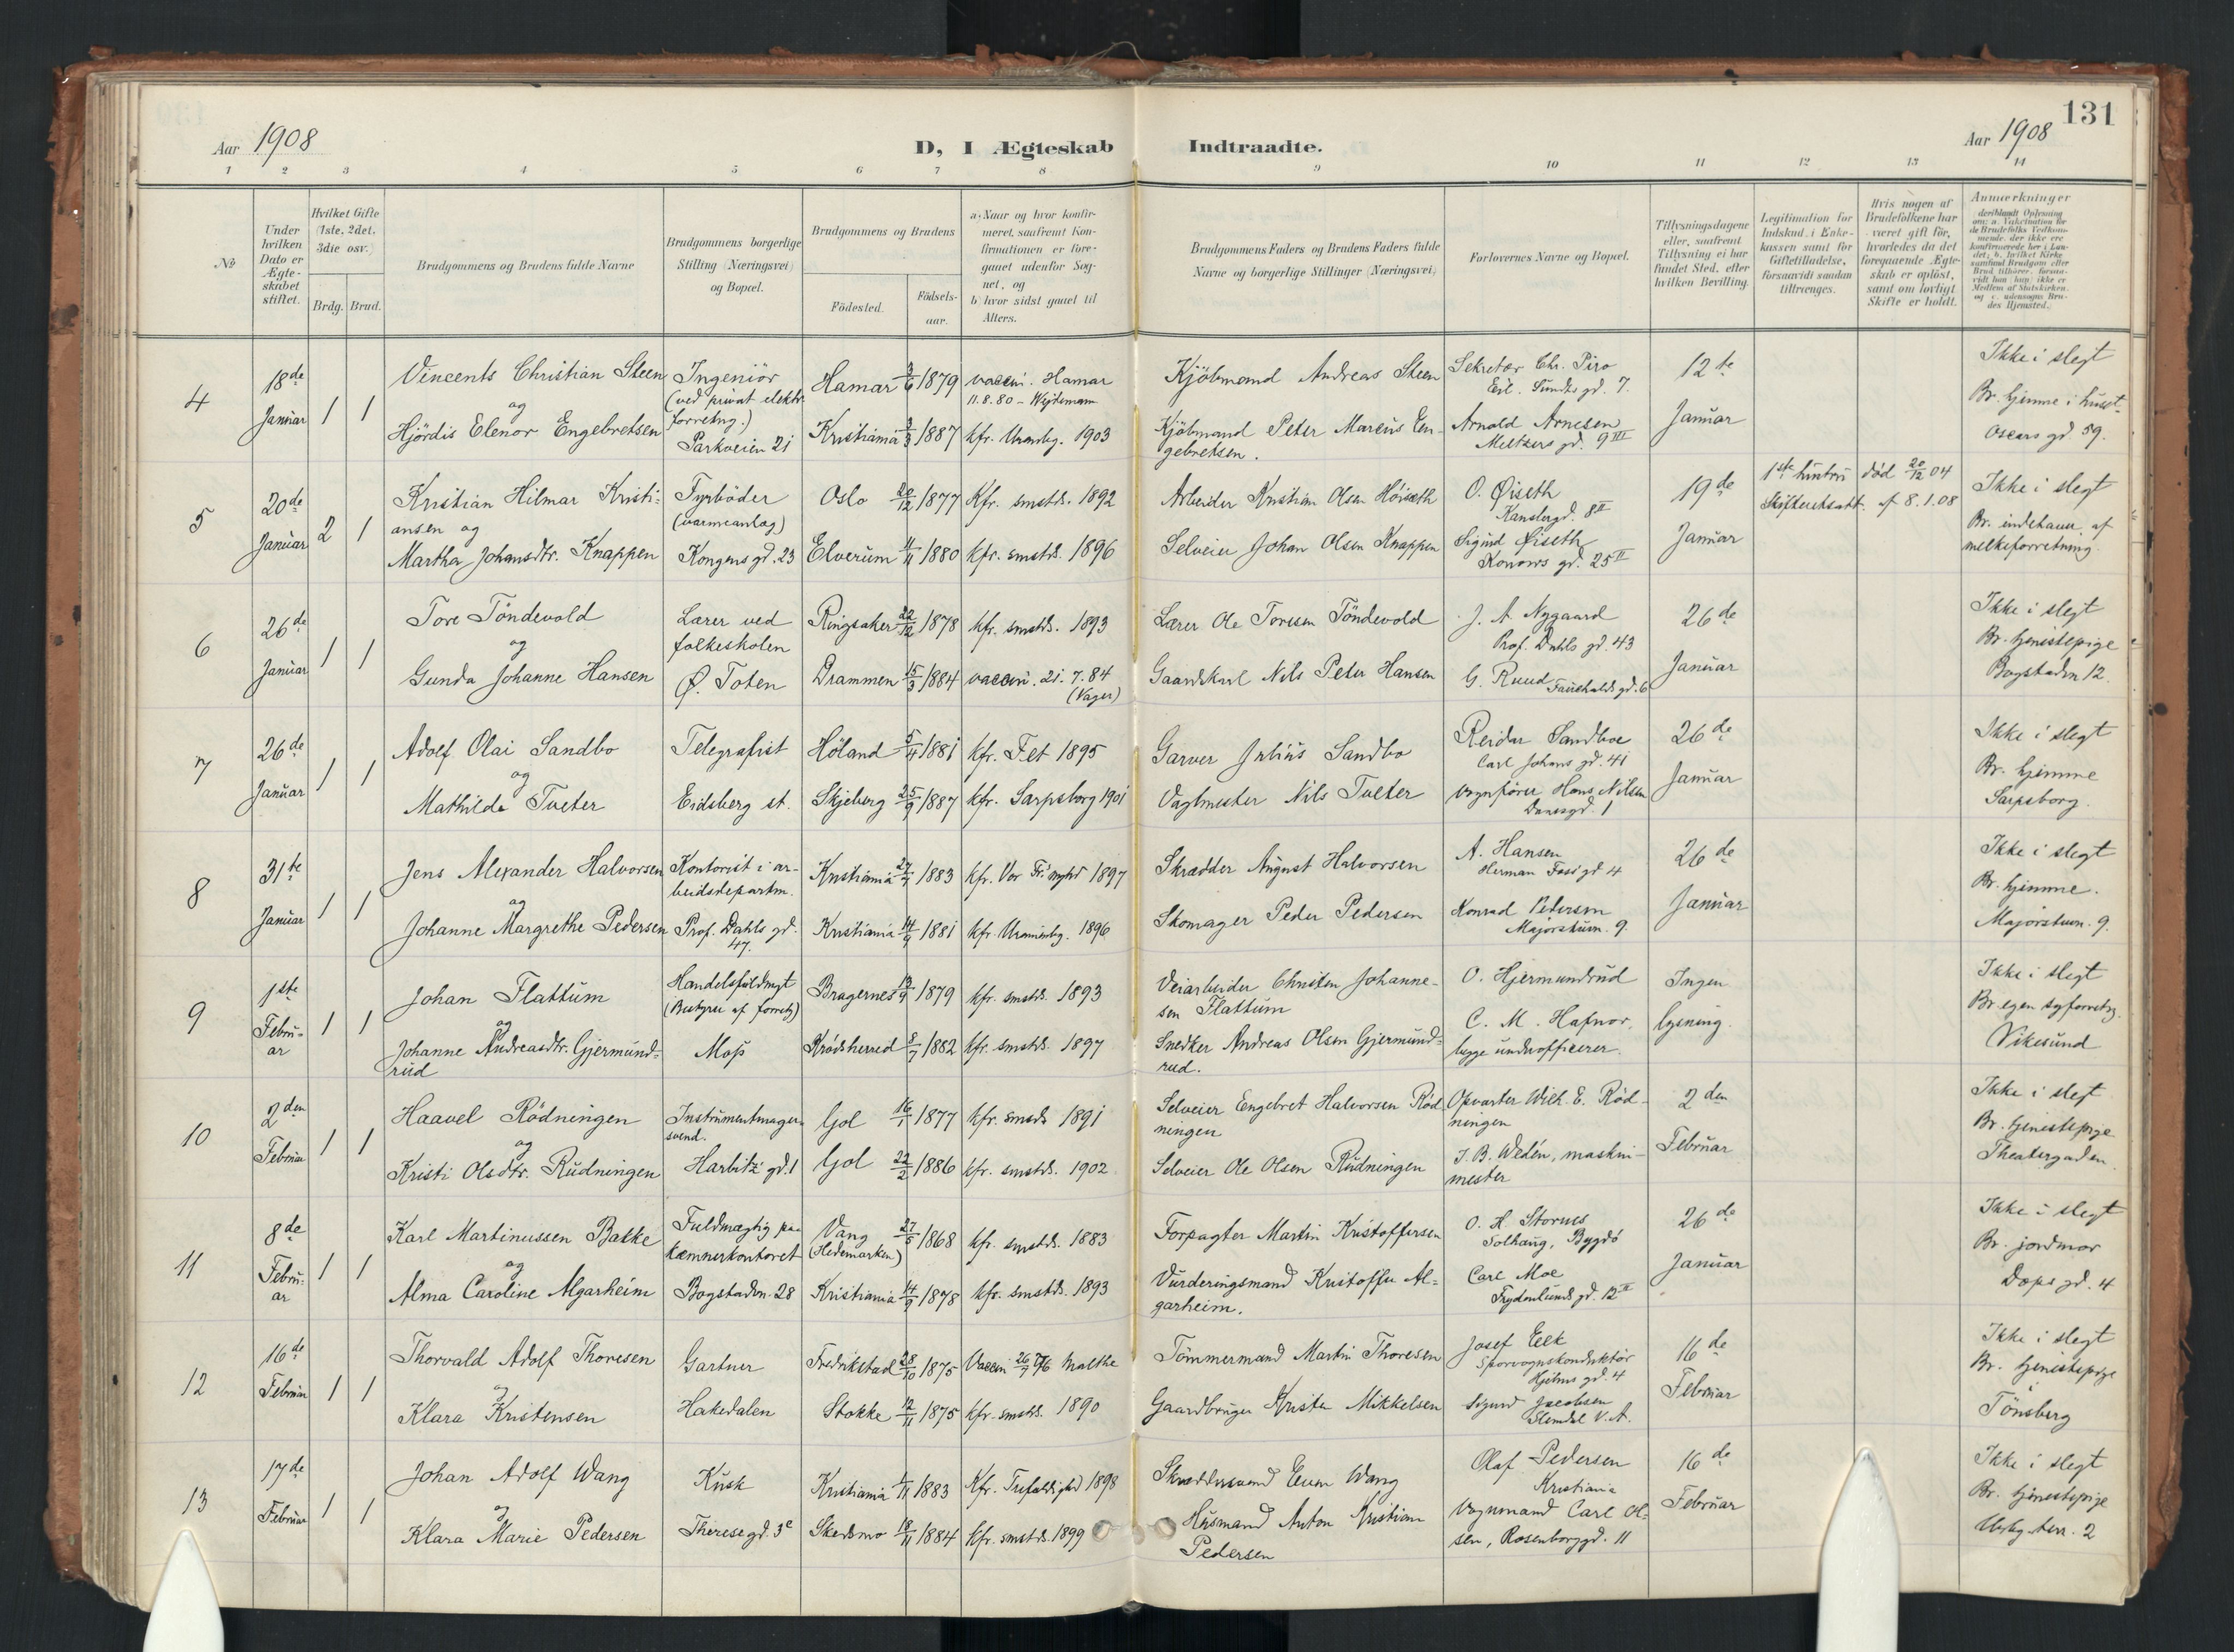 131
Aar 1908
D, I Ægteskab Indtraadte.
Aar 1908
1 2 3 4 5 6 7 8 9 10 11 12 13 14
No
Under hvilken Dato er Ægte-skabet stiftet.
Hvilket Gifte (1ste, 2det, 3die osv.)
Brdg. Brud.
Brudgommens og Brudens fulde Navne
Brudgommens borgerlige Stilling (Næringsvei) og Bopæl.
Brudgommens og Brudens
Födested.
Födsels-aar.
a. Naar og hvor konfir-meret, saafremt Kon-firmationen er fore-gaaet udenfor Sog-net, og
b. hvor sidst gaaet til Alters.
Brudgommens Faders og Brudens Faders fulde Navne og borgerlige Stillinger (Næringsvei)
Forlovernes Navne og Bopæl.
Tillysningsdagene eller, saafremt Tillysning ei har fundet Sted, efter hvilken Bevilling.
Legitimation for Indskud i Enke-kassen samt for Giftetilladelse, forsaavidt saadan tiltrænges.
Hvis nogen af Brudefolkene har været gift før, hvorledes da det foregaaende Ægte-skab er opløst, samt om lovligt Skifte er holdt.
Anmerkninger
4
18de Januar
1 1
Vincents Christian Steen
og
Hjördis Elenor Engebretsen
Ingeniör
(ved privat elektr. forretng.)
Parkveien 21
Hamar 3/6 1879
Kristiania 3/3 1887
vaccin. Hamar
11.8.80 - Wejdemann
kfr. Uranbg. 1903
Kjöbmand Andreas Steen
Kjöbmand Peter Marcus En-
gebretsen.
Sekretær Chr. Piro
Eil. Sundts gd. 7.
Arnold Arnesen
Meltzers gd. 9 III
12te
Januar
Ikke i slegt
Br. hjemme i huset
Oscars gd 59.
5
20de Januar
2 1
Kristian Hilmar Kristi-
ansen og
Martha Johansdtr. Knappen
Fyrböder
(varmeanlæg)
Kongens gd. 23
Oslo 20/12 1877
Elverum 4/11 1880
Kfr. smstds. 1892
kfr. smstds. 1896
Arbeider Kristian Olsen Höiseth
Selveier Johan Olsen Knappen
O. Øiseth
Kanslergd. 8 II
Sigurd Øiseth
Konows gd. 25 II
19de
Januar
1ste hustru död 20/12 04
Skifteretsatt. af 8.1.08
Ikke i slegt
Br. indehaver af
melkeforretning.
6
26de Januar
1 1
Tore Töndevold
og
Gunda Johanne Hansen
Lærer ved
folkeskolen
Ø. Toten
Ringsaker 22/12 1878
Drammen 15/3 1884
kfr. smstds. 1893
vaccin. 21.7.84
(Vager)
Lærer Ole Toresen Töndevold
Gaardskarl Nils Peter Hansen
J. A. Nygaard
Prof. Dahls gd. 43
G. Ruud Fauchalds gd. 6
26de
Januar
Ikke i slegt
Br. tjenestepige
Bogstadvn 12.
7
26de Januar
1 1
Adolf Olai Sandbo
og
Mathilde Tveter
Telegrafist
Eidsberg st.
Höland 5/4 1881
Skjeberg 25/9 1887
kfr. Fet 1895
kfr. Sarpsborg 1901
Garver Julius Sandbo
Vagtmester Nils Tveter
Reidar Sandboe
Carl Johans gd. 41
vognförer Hans Nilsen
Daasgd. 1
26de
Januar
Ikke i slegt
Br. hjemme
Sarpsborg.
8
31te Januar
1 1
Jens Alexander Halvorsen
og
Johanne Margrethe Pedersen
Kontorist i ar-
beidsdepartm.
Prof. Dahls gd.
47.
Kristiania 27/7 1883
Kristiania 14/9 1881
kfr. Vor Fr. 1897
kfr. Uranienbg. 1896
Skrædder August Halvorsen
Skomager Peder Pedersen
A. Hansen
Herman Foss gd 4
Konrad Petersen
Majorstuvn. 9.
26de
Januar
Ikke i slegt
Br. hjemme.
Majorstuvn. 9.
9
1ste Febru-ar
1 1
Johan Flattum
og
Johanne Andreasdtr. Gjermund-
rud
Handelsfuldmgt
(Bestyrer af forretg)
Moss
Bragernes 13/9 1879
Krödsherred 8/7 1882
kfr. smstds. 1893
kfr. smstds. 1897
Veiarbeider Christen Johanne-
sen Flattum
Snedker Andreas Olsen Gjermund-
rud.
O. Hjermundrud
C. M. Hafnor,
begge underofficerer.
Ingen
lysning.
Ikke i slegt
Br. egen syforretng.
Vikesund
10
2den Februar
1 1
Haavel Rödningen
og
Kristi Olsdtr. Rudningen
Instrumentmager-
svend.
Harbitz' gd. 1
Gol 16/1 1877
Gol 22/2 1886
kfr. smstds 1891
kfr. smstds. 1902
Selveier Engebret Halvorsen Röd-
ningen
Selveier Ole Olsen Rudningen
Opvarter Wilh. E. Röd-
ningen
J. B. Wedén, maskin-
mester
2den
Februar
Ikke i slegt
Br. tjenestepige
Theatergaden.
11
8de Febru-ar
1 1
Karl Martinussen Bakke
og
Alma Caroline Algarheim
Fuldmægtig paa
kæmnerkontoret
Bogstadvn. 28
Vang 27/5 1868
(Hedemarken)
Kristiania 14/9 1878
kfr. smstds. 1883
kfr. smstds. 1893
Forpagter Martin Kristoffersen
Vurderingsmand Kristoffer Al-
garheim.
O. H. Stornes
Solhaug, Bygdö
Carl Moe
Frydenlunds gd. 12 II
26de
Januar
Ikke i slegt
Br. jordmor
Dops gd. 4
12
16de Februar
1 1
Thorvald Adolf Thoresen
og
Klara Kristensen
Gartner
Hakedalen
Fredrikstad 28/10 1875
Stokke 12/11 1875
Vaccin 26/7 76 Malthe
kfr. smstds. 1890
Tömmermand Martin Thoresen
Gaardbruger Krister Mikkelsen
Josef Eek
Sporvognskonduktör
Hjelms gd. 4
Sigurd Jacobsen
Slemdal V. A.
16de
Februar
Ikke i slegt
Br. tjenestepige
Tönsberg
13
17de Februar
1 1
Johan Adolf Wang
og
Klara Marie Pedersen
Kusk
Therese gd. 3
Kristiania 1/11 1883
Skedsmo 18/11 1884
Kfr. Trefoldighed 1898
kfr. smstds. 1899
Skræddersvend Even Wang
Husmand Anton Kristian
Pedersen
Olaf Pedersen
Kristiania
Vognmand Carl Ol-
sen, Rosenborggd. 11
16de
Februar
Ikke i slegt
Br. tjenestepige